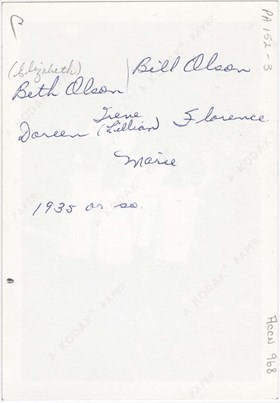 (Elizabeth) Bill Olson
Beth Olson
Irene
Doreen (Lillian) Florence
Marie
1935 or so.
PA 152-3
Accn 968
KODAK PAPER